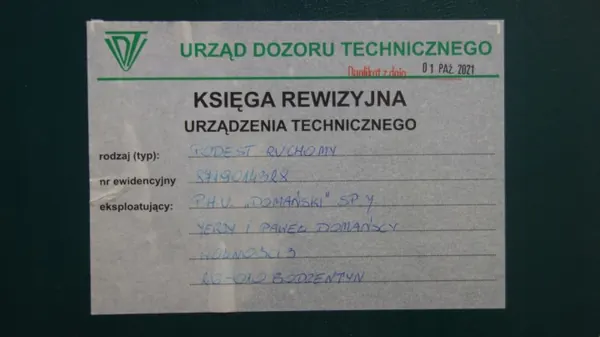 UDT
URZĄD DOZORU TECHNICZNEGO
Duplikat z dnia 01 PAŹ. 2021
KSIĘGA REWIZYJNA
URZĄDZENIA TECHNICZNEGO
rodzaj (typ): PODEST RUCHOMY
nr ewidencyjny 8719014328
eksploatujący: P.H.U. „DOMAŃSKI" SP. J
JERZY I PAWEŁ DOMAŃSCY
WOLNOŚCI 3
26-010 BODZENTYN